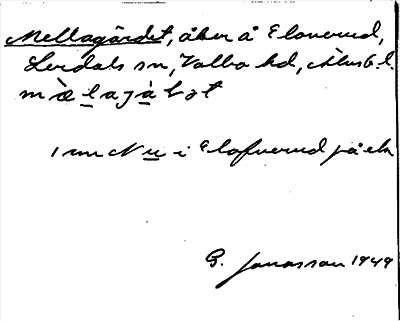 Mellagärdet, åker å Eloverud,
Lerdals sn, Valbo hd, Älvsb l.
mæ̀lajàɽət
1 mm N u i Elofverud på ek
G. Jonasson 1949